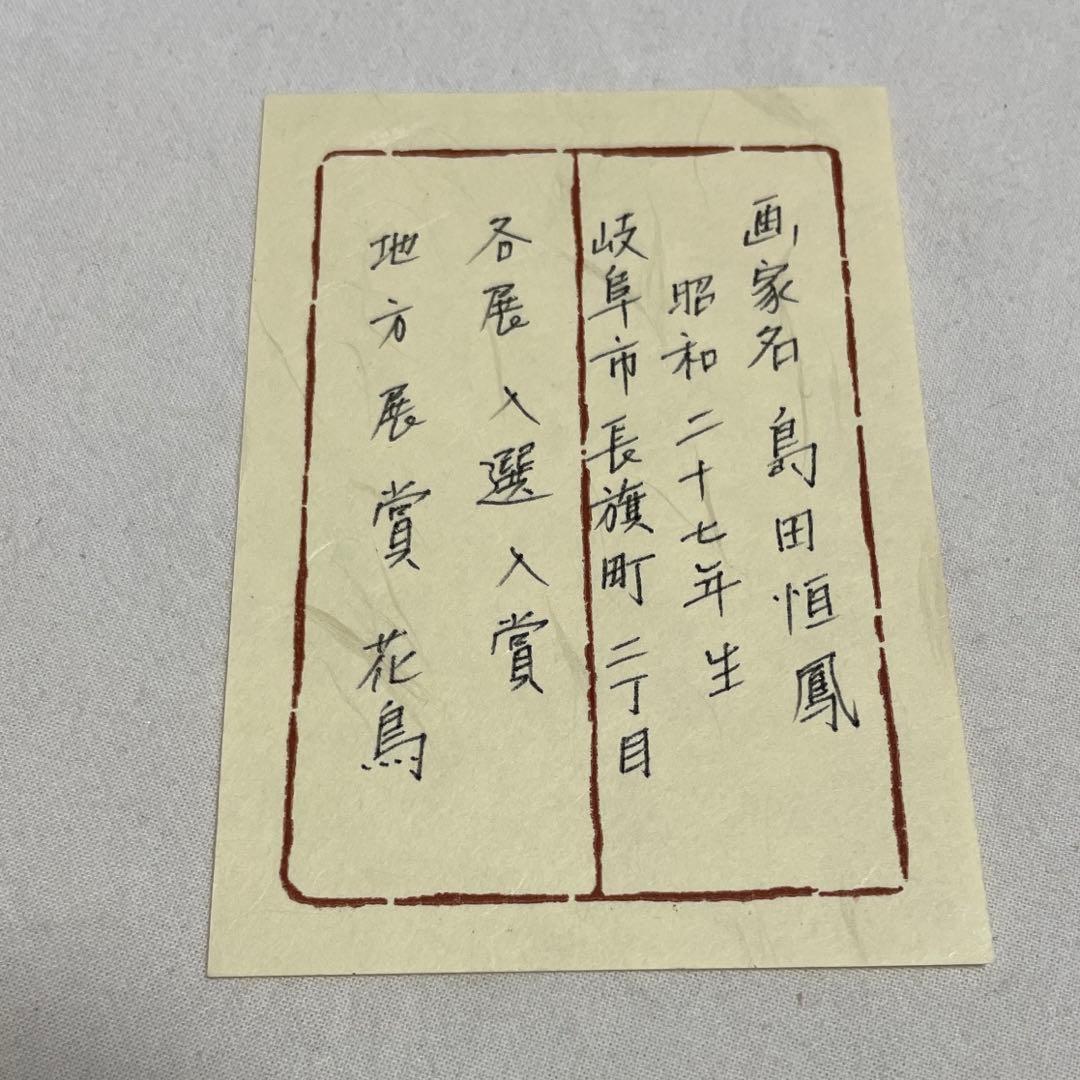 画家名 島田恒鳳
昭和二十七年生
岐阜市長旗町二丁目
各展入選入賞
地方展賞 花鳥